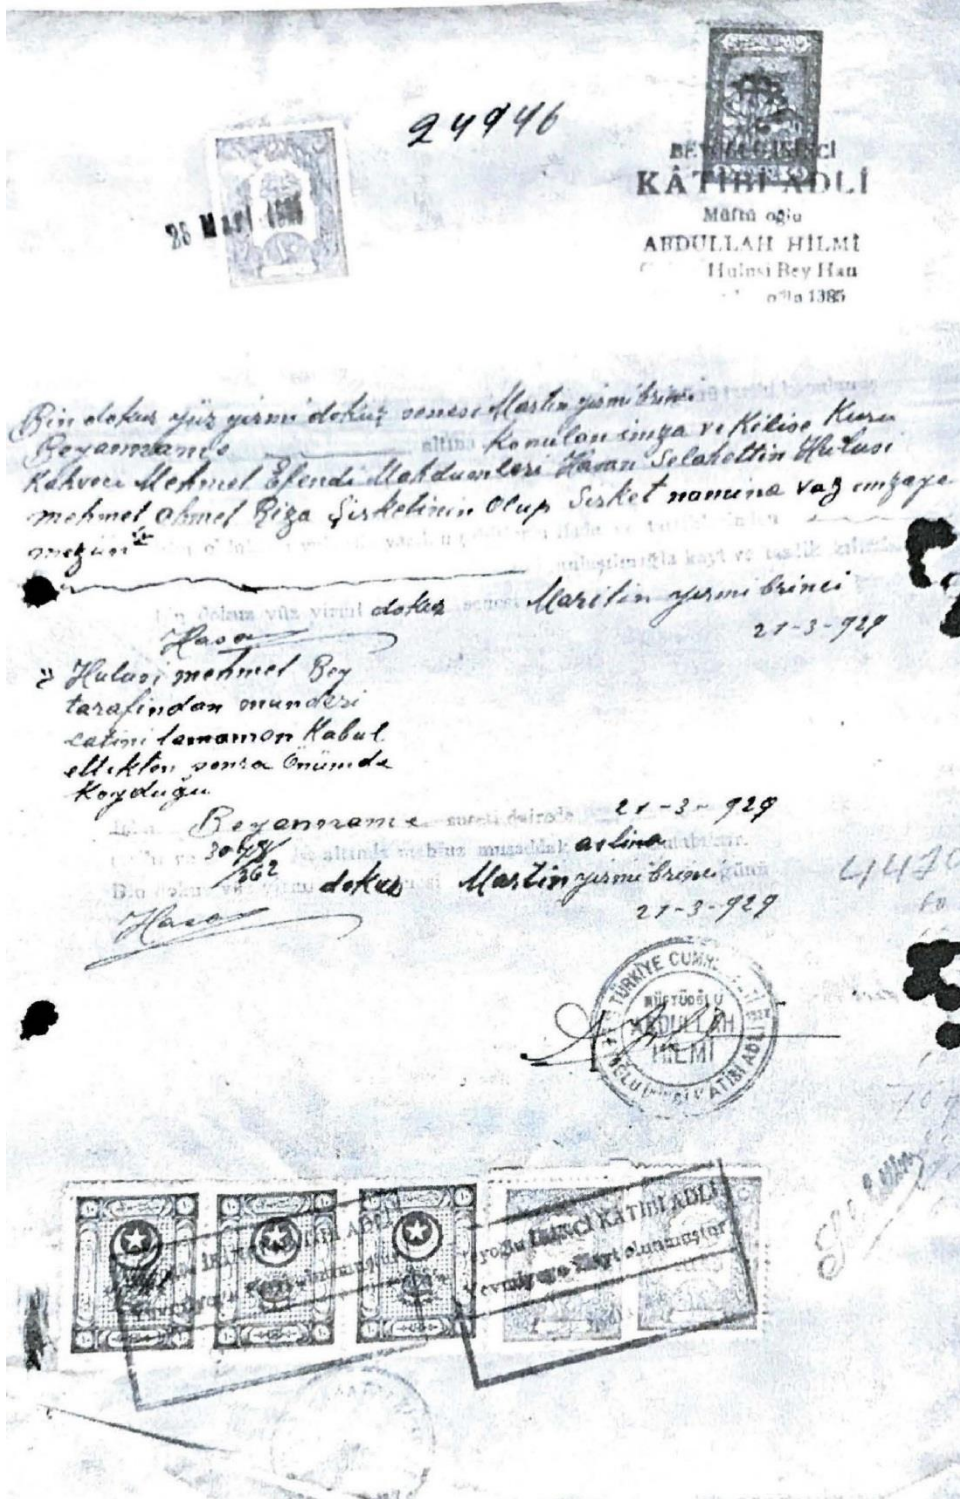 24946
28 Mart
BEYOĞLU İKİNCİ
KÂTİBİ ADLİ
Müftü oğlu
ABDULLAH HİLMİ
Hulusi Bey Han
1385
Bin dokuz yüz yirmi dokuz senesi Martin yirmi birinci
Beyanname altına konulan imza ve Kilise Kuru
Kahveci Mehmet Efendi Mahdumları Hasan Selahettin Hulusi
mehmet ahmet Riza Şirketinin olup Şirket namina vaz imzaya
mezun
anlaşılmağla kayt ve tasdik kılındı
bin dokuz yüz yirmi dokuz senesi Martin yirmi birinci
21-3-929
Hasan
Hulusi mehmet Bey
tarafindan munderi
catini tamamen Kabul
ettikten sonra Önümde
Koyduğu
İşbu Beyanname sureti dairede 21-3-929
altında mahfuz musaddak aslina
362
Bin dokuz yüz yirmi dokuz senesi Martin yirmi birinci günü
21-3-929
Hasan
TÜRKİYE CUMHURİYETİ
MÜFTÜOĞLU
ABDULLAH
HİLMİ
BEYOĞLU İKİNCİ KATİBİ ADLİ
Beyoğlu İKİNCİ KATİBİ ADLİ
Yevmiyeye Kayt olunmuştur
Beyoğlu İKİNCİ KATİBİ ADLİ
Yevmiyeye Kayt olunmuştur